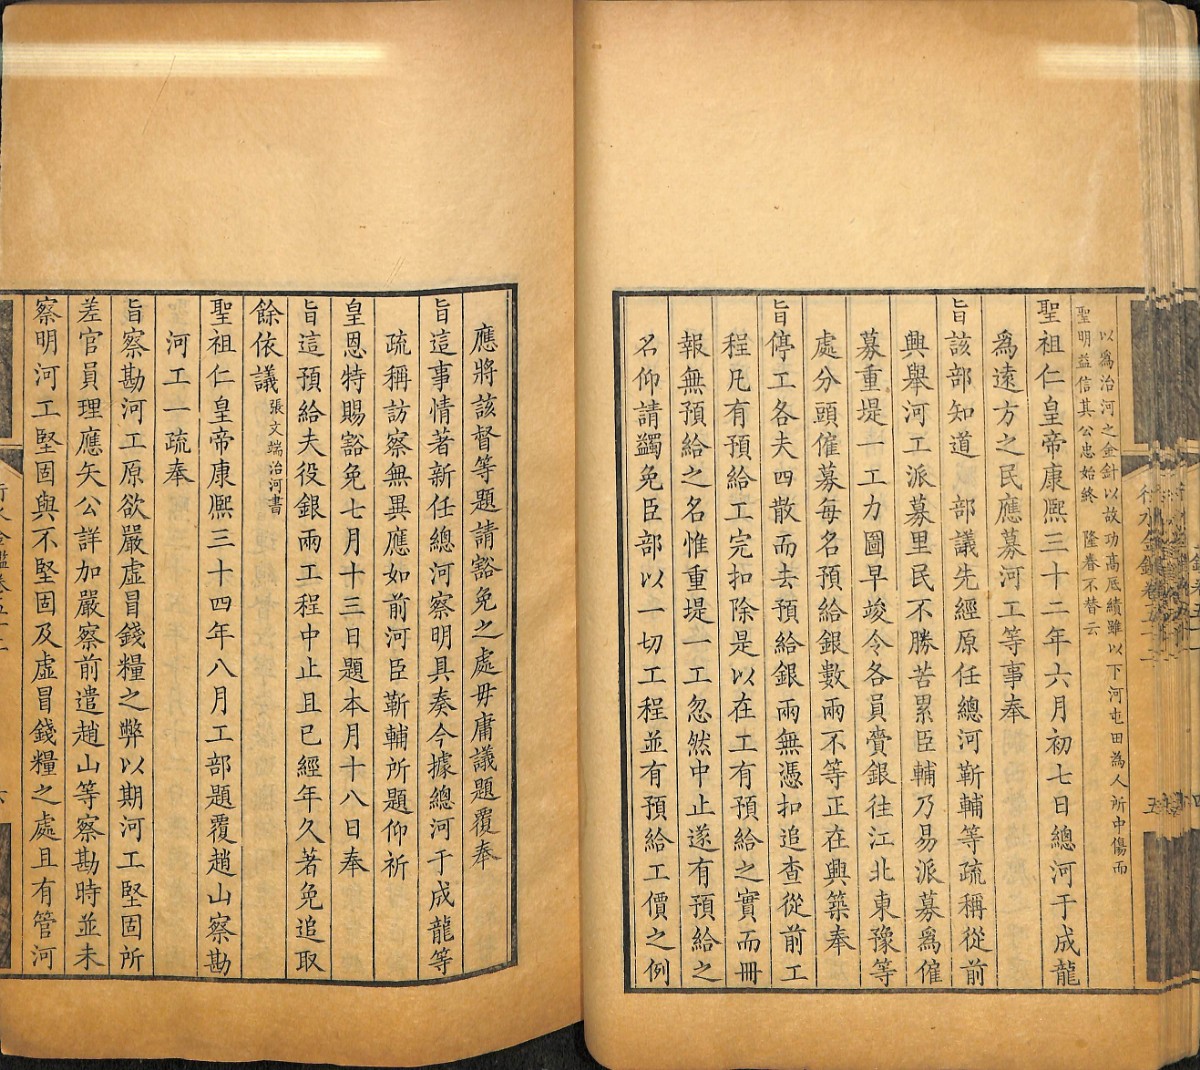 以為治河之金針以故功高厎績雖以下河屯田為人所中傷而
聖明益信其公忠始終　隆眷不替云
聖祖仁皇帝康熙三十二年六月初七日總河于成龍
為遠方之民應募河工等事奉
旨該部知道　部議先經原任總河靳輔等疏稱從前
興舉河工派募里民不勝苦累臣輔乃易派募爲僱
募重堤一工力圖早竣令各員賫銀往江北東豫等
處分頭僱募每名預給銀數兩不等正在興築奉
旨停工各夫四散而去預給銀兩無憑扣追查從前工
程凡有預給工完扣除是以在工有預給之實而冊
報無預給之名惟重堤一工忽然中止遂有預給之
名仰請蠲免臣部以一切工程並有預給工價之例
應將該督等題請豁免之處毋庸議題覆奉
旨這事情著新任總河察明具奏今據總河于成龍等
疏稱訪察無異應如前河臣靳輔所題仰祈
皇恩特賜豁免七月十三日題本月十八日奉
旨這預給夫役銀兩工程中止且已經年久著免追取
餘依議張文端治河書
聖祖仁皇帝康熙三十四年八月工部題覆趙山察勘
河工一疏奉
旨察勘河工原欲嚴虛冒錢糧之弊以期河工堅固所
差官員理應矢公詳加嚴察前遣趙山等察勘時並未
察明河工堅固與不堅固及虛冒錢糧之處且有管河